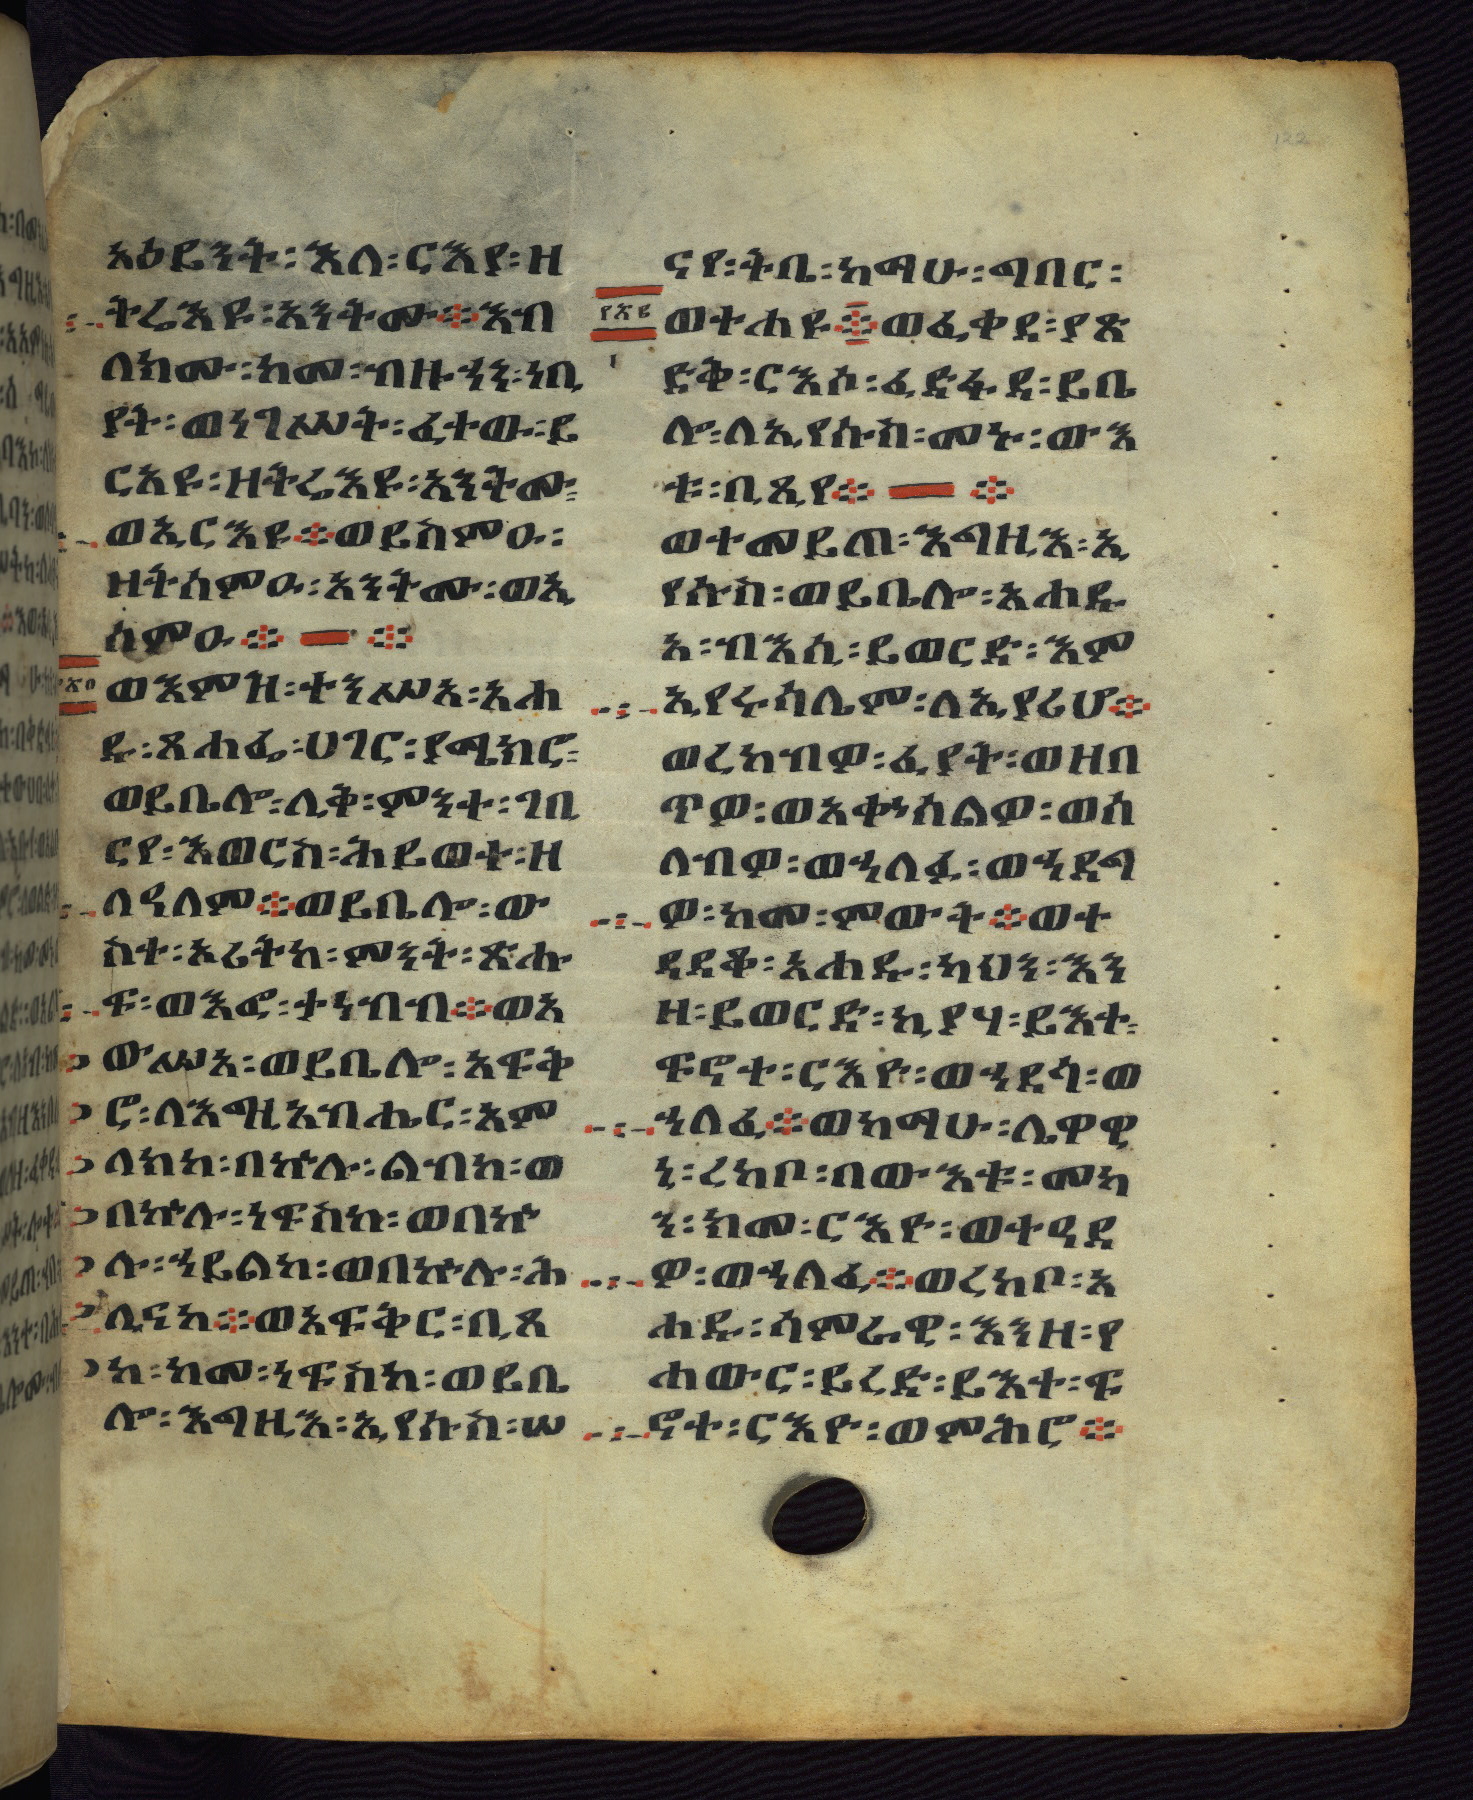 አዕይንት፡እለ፡ርእያ፡ዘ
ትሬእዩ፡አንትሙ፨እብ
ለክሙ፡ከመ፡ብዙኃን፡ነቢ
ያት፡ወነገሥት፡ፈተው፡ይ
ርአዩ፡ዘትሬእዩ፡አንትሙ፡
ወኢርእዩ፨ወይስምዑ፡
ዘትሰምዑ፡አንትሙ፡ወኢ
ሰምዑ፨ ፨
ወእምዝ፡ተንሥአ፡አሐ
ዱ፡ጸሐፌ፡ሀገር፡ያሜክሮ፡
ወይቤሎ፡ሊቅ፡ምንተ፡ገቢ
ርየ፡እወርስ፡ሕይወተ፡ዘ
ለዓለም፨ወይቤሎ፡ው
ስተ፡ኦሪትከ፡ምንት፡ጽሑ
ፍ፡ወእፎ፡ተነብብ፨ወአ
ውሥአ፡ወይቤሎ፡አፍቅ
ሮ፡ለእግዚአብሔር፡አም
ላክከ፡በኵሉ፡ልብከ፡ወ
በኵሉ፡ነፍስከ፡ወበኵ
ሉ፡ኃይልከ፡ወበኵሉ፡ሕ
ሊናከ፨ወአፍቅር፡ቢጸ
ከ፡ከመ፡ነፍስከ፡ወይቤ
ሎ፡እግዚእ፡ኢየሱስ፡ሠ
ናየ፡ትቤ፡ከማሁ፡ግበር፡
ወተሐዩ፨ወፈቀደ፡ያጽ
ድቅ፡ርእሶ፡ፈድፋደ፡ይቤ
ሎ፡ለኢየሱስ፡መኑ፡ውእ
ቱ፡ቢጺየ፨ ፨
ወተመይጠ፡እግዚእ፡ኢ
የሱስ፡ወይቤሎ፡አሐዱ
አ፡ብእሲ፡ይወርድ፡እም
ኢየሩሳሌም፡ለኢያሪሆ፨
ወረከብዎ፡ፈያት፡ወዘበ
ጥዎ፡ወአቍሰልዎ፡ወሰ
ለብዎ፡ወኃለፉ፡ወኃደግ
ዎ፡ከመ፡ምውት፨ወተ
ዳደቆ፡አሐዱ፡ካህን፡እን
ዘ፡ይወርድ፡ኪያሃ፡ይእተ፡
ፍኖተ፡ርእዮ፡ወኃደጎ፡ወ
ኃለፈ፨ወከማሁ፡ሌዋዊ
ኒ፡ረከቦ፡በውእቱ፡መካ
ን፡ከመ፡ርእዮ፡ወተዓደ
ዎ፡ወኃለፈ፨ወረከቦ፡አ
ሐዱ፡ሳምራዊ፡እንዘ፡የ
ሐውር፡ይረድ፡ይእተ፡ፍ
ኖተ፡ርእዮ፡ወምሕሮ፨